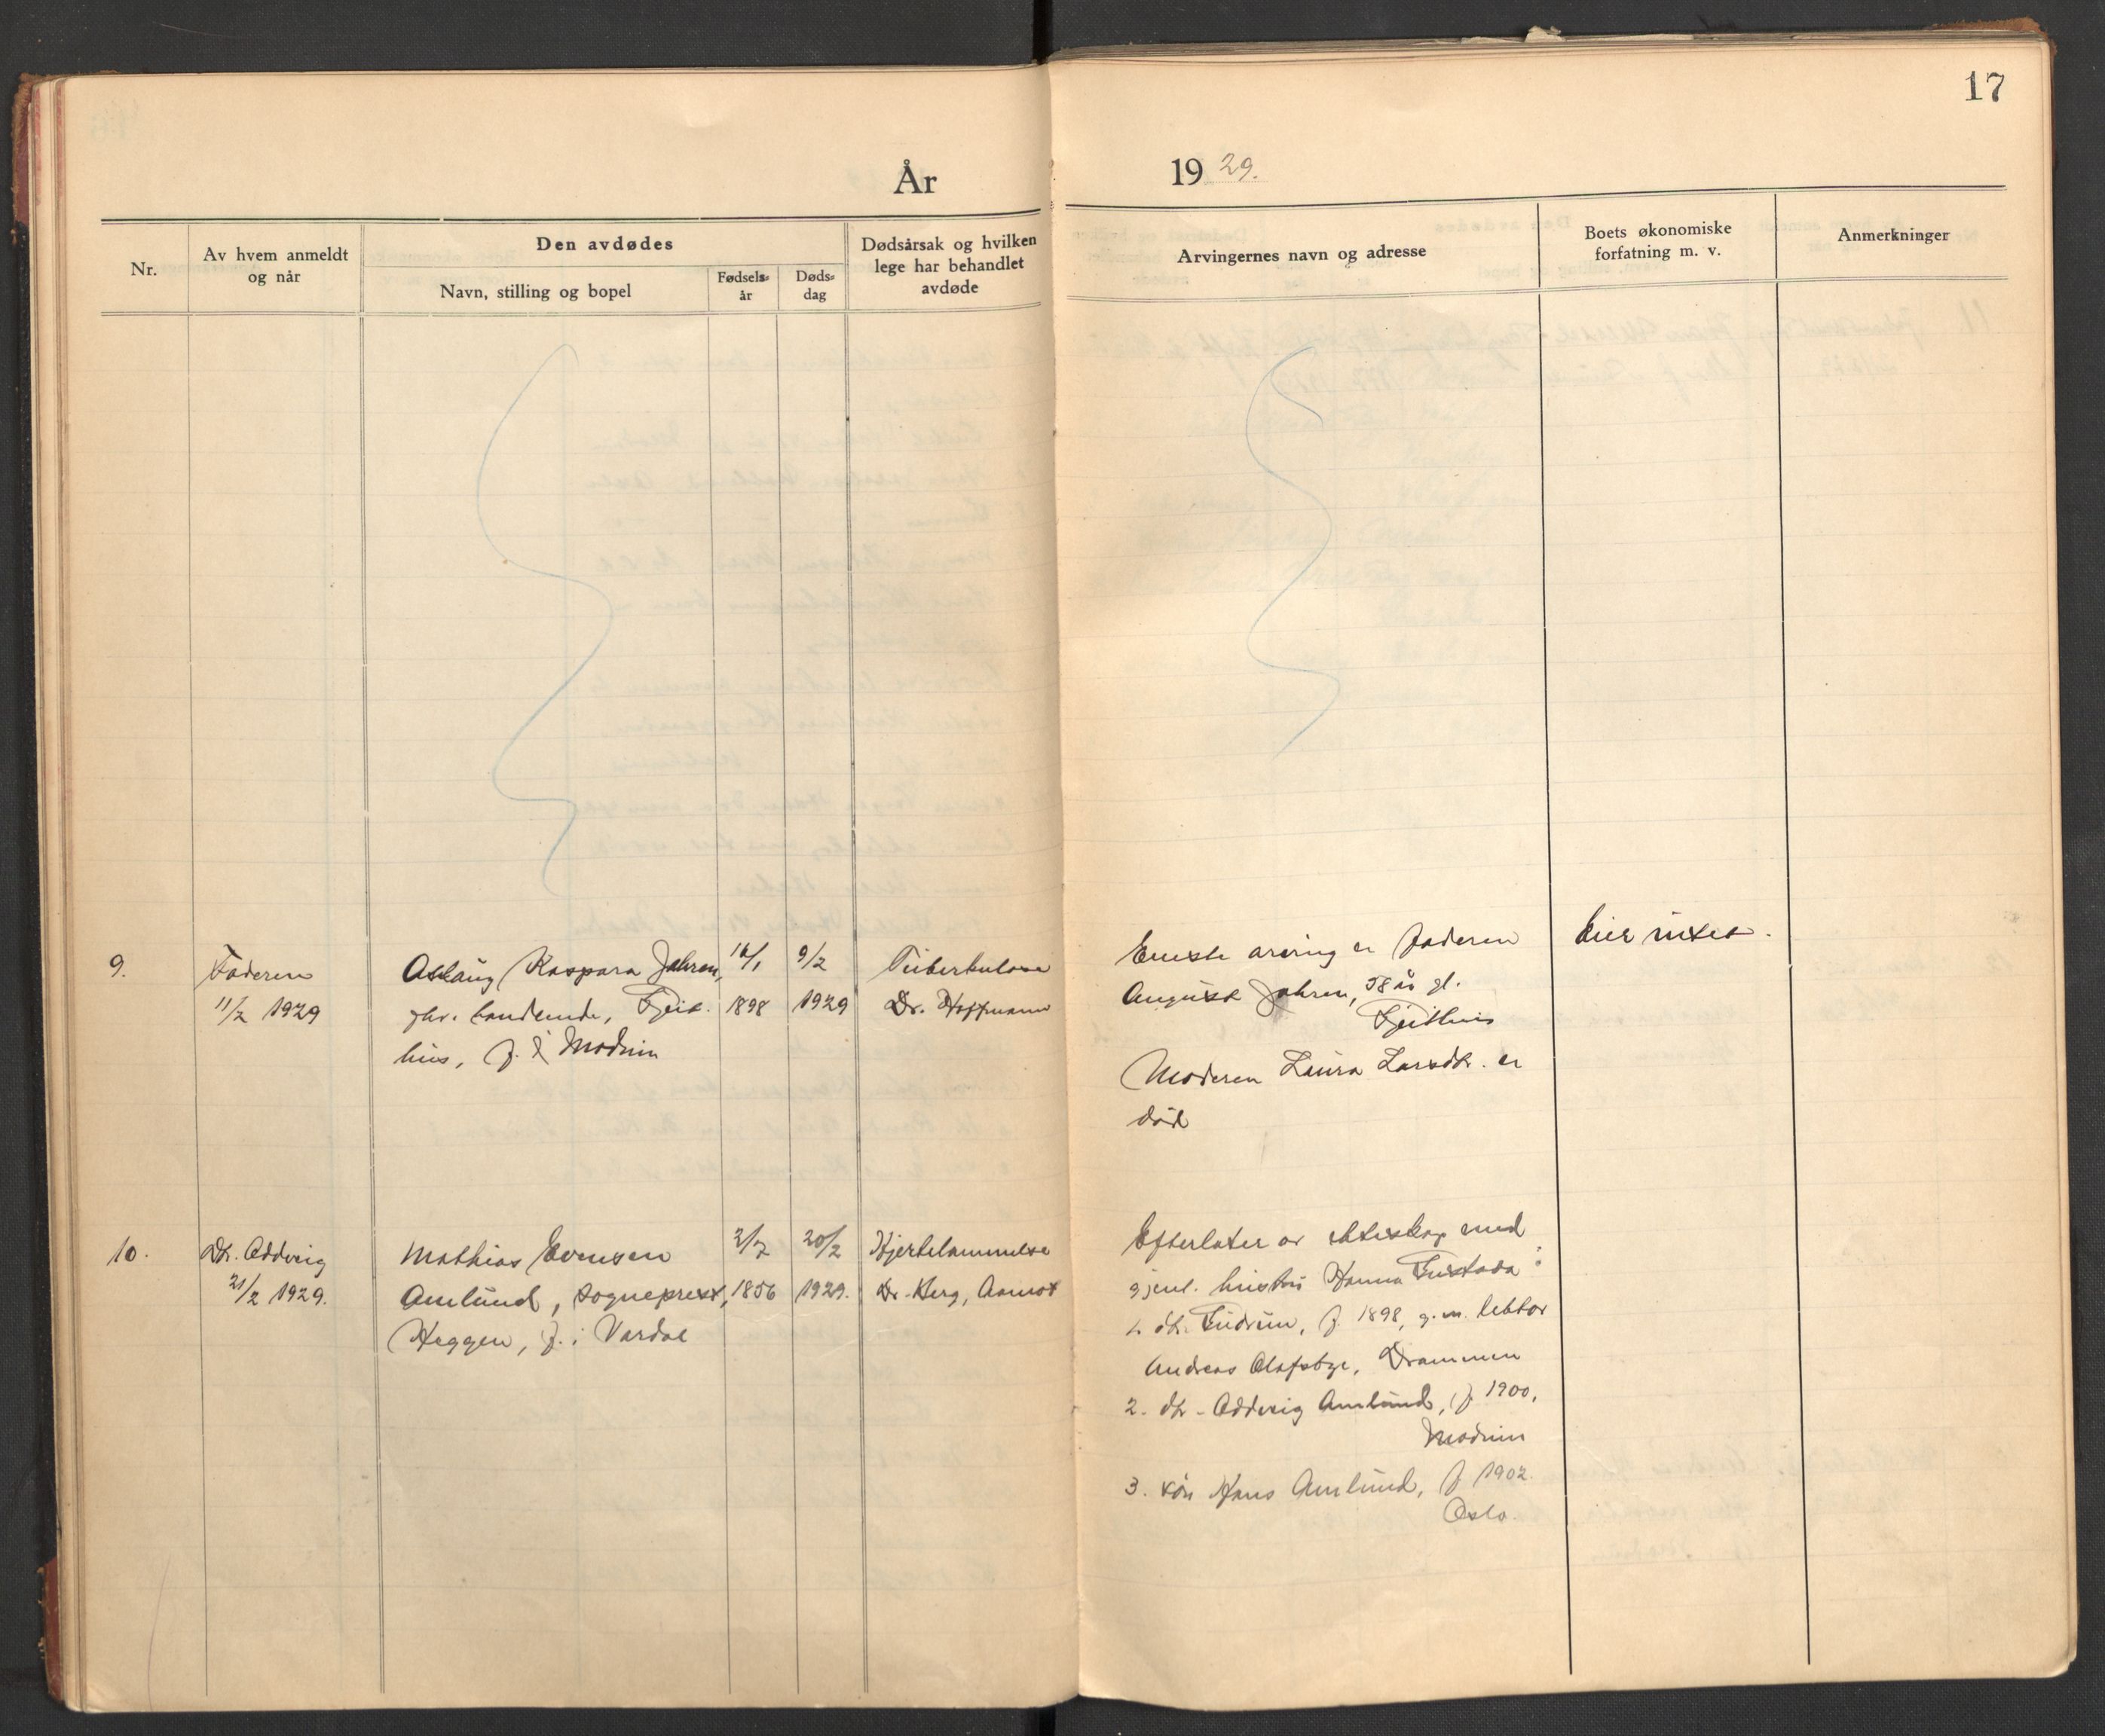 17
År 1929.
Nr.
Av hvem anmeldt
og når
Den avdødes
Navn, stilling og bopel
Fødsels-
år
Døds-
dag
Dødsårsak og hvilken
lege har behandlet
avdøde
Arvingernes navn og adresse
Boets økonomiske
forfatning m. v.
Anmerkninger
9.
Faderen
11/2 1929
Aslaug Kaspara Jahren,
Geit-
hus, f. i Modum
16/1
1898
9/2
1929
Tuberkulose
Dr. Hoffmann
Eneste arving er faderen
August Jahren, 58 år gl.
Geithus
Moderen Laura Larsdtr. er
død
Eier intet.
10.
Dtr. Oddveig
21/2 1929.
Mathias Evensen
Amlund, sogneprest,
Heggen, f. i Vardal
2/7
1856
20/2
1929.
Hjertelammelse
Dr. Berg, Aamot
Efterlater av ekteskap med
gjenl. hustru Hanna Gustava:
1. dtr. Gudrun, f. 1898, g.m. lektor
Andreas Olafsbye, Drammen
2. dtr. Oddveig Amlund, f. 1900,
Modum
3. søn Hans Amlund, f 1902.
Oslo.